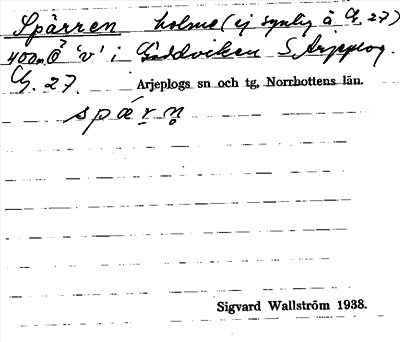 Spärren holme (ej synlig å G. 27)
400m Ö 'v' i Gäddviken S Arjeplog.
G. 27. Arjeplogs sn och tg, Norrbottens län.
spǽr n̥
Sigvard Wallström 1938.